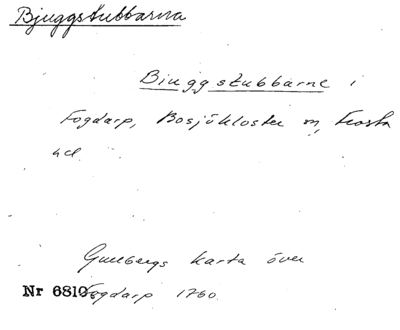 Bjuggstubbarna
Bjuggstubbarne i
Fogdarp, Bosjökloster sn, Frosta
hd.
Gullbergs karta över
Nr 6810. Fogdarp 1760.